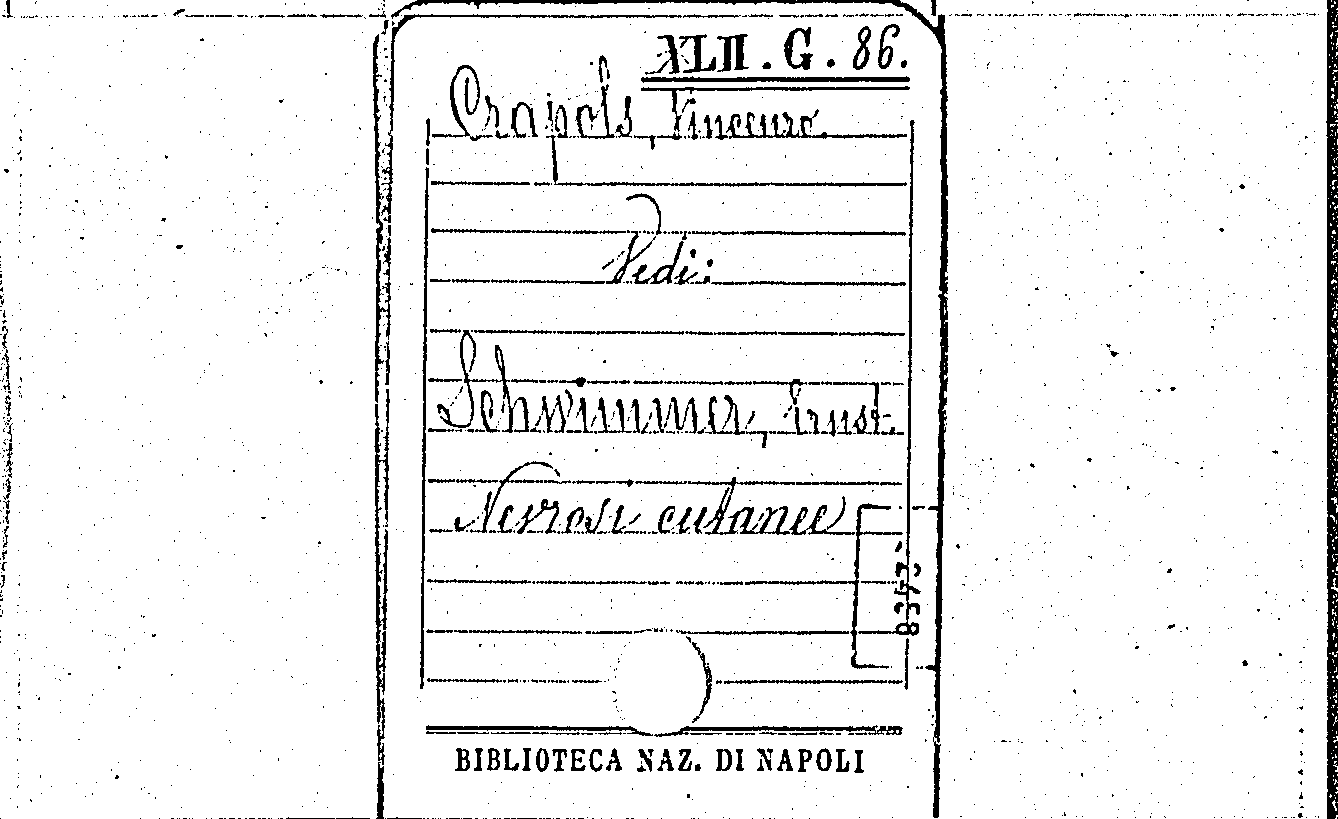 XLII. G. 86.
Crapols, Vincenzo.
Vedi:
Schwimmer, Ernst.
Nevrosi cutanee
BIBLIOTECA NAZ. DI NAPOLI